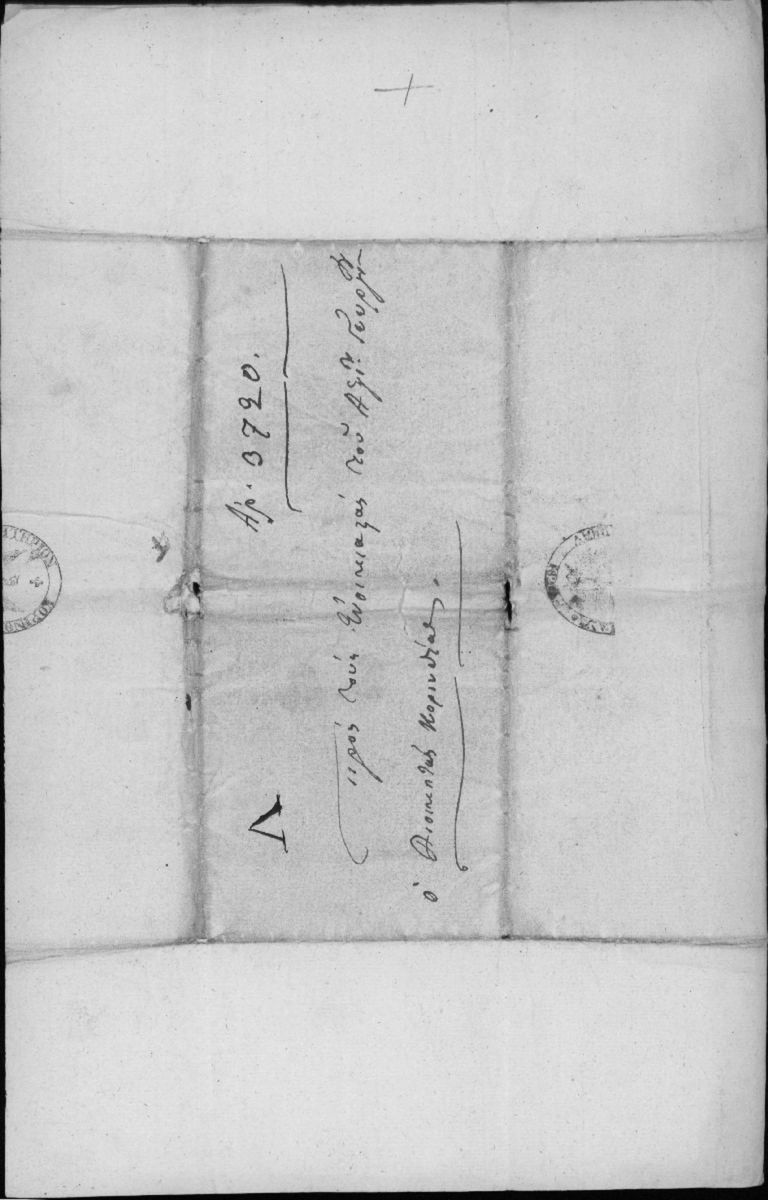 Ἀρ. 3720.
Δ
πρὸς τοὺς Ἐνοικιαστὰς τοῦ Ἁγίου Γεωργίου
ὁ Διοικητὴς Κορινθίας.